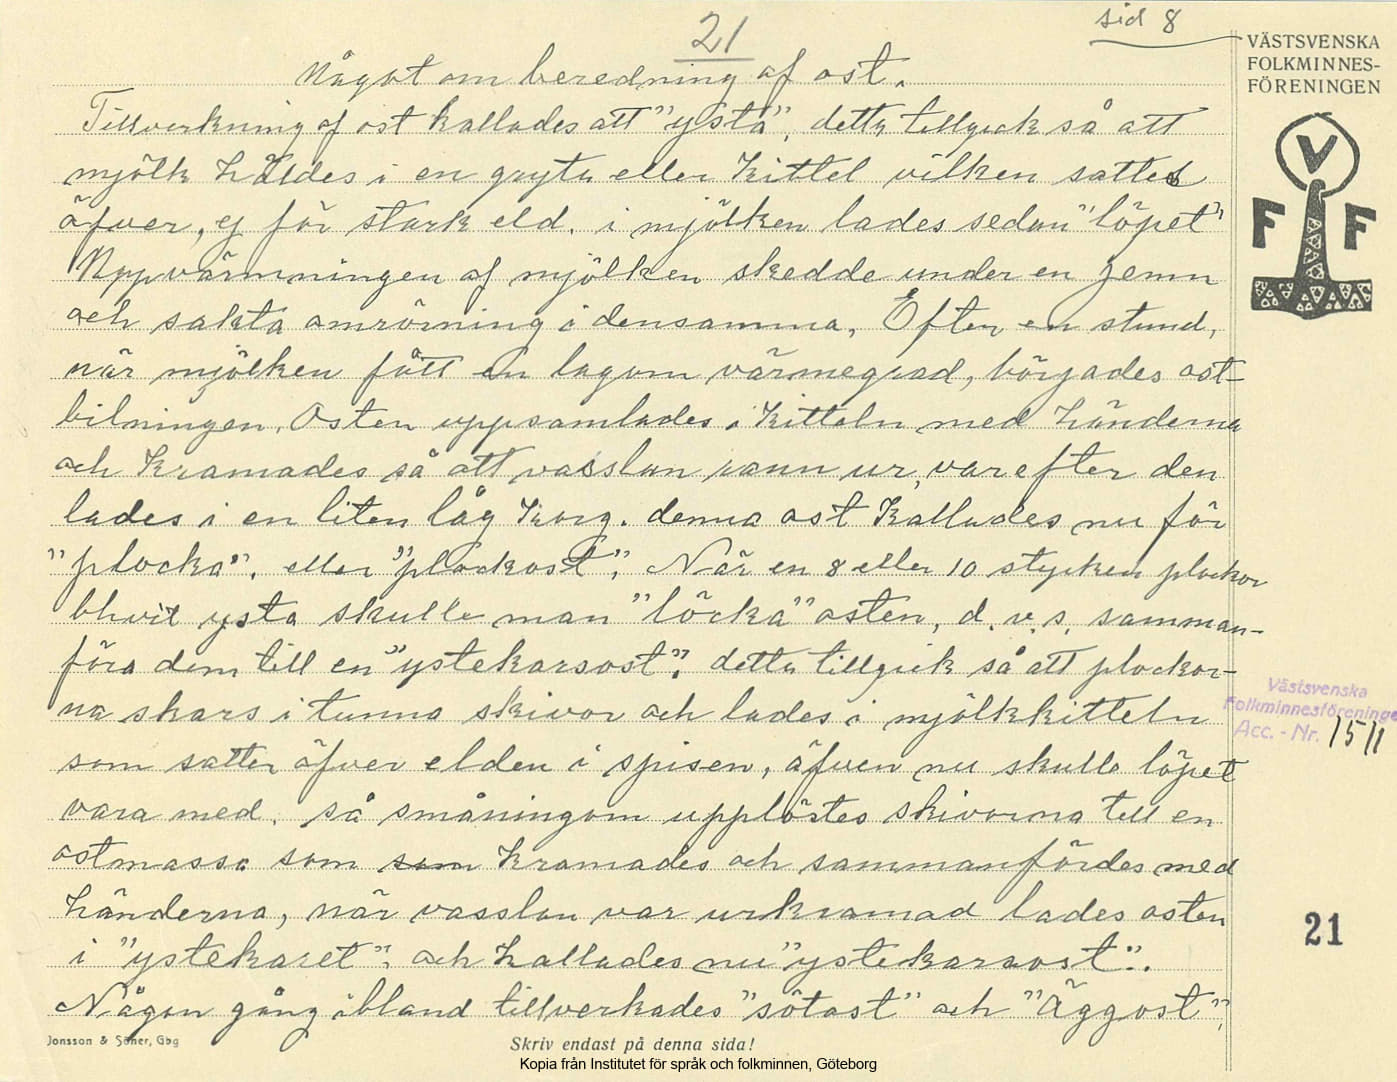 21
sid 8
VÄSTSVENSKA
FOLKMINNES-
FÖRENINGEN
V
F F
Något om beredning af ost.
Tillverkning af ost kallades att "ysta", detta tillgick så att
mjölk häldes i en gryta eller kittel vilken sattes
öfver, ej för stark eld. i mjölken lades sedan "löpet"
Uppvärmningen af mjölken skedde under en jemn
och sakta omrörning i densamma, Efter en stund,
när mjölken fått en lagom värmegrad, börjades ost-
bilningen. Osten uppsamlades i kitteln med händerna
och kramades så att vasslan rann ur, var efter den
lades i en liten låg korg. denna ost kallades nu för
"plocka". eller "plockost". När en 8 eller 10 stycken plockor
blivit ysta skulle man "löcka" osten, d.v.s. samman-
föra dem till en "ystekarsost". detta tillgick så att plockor-
na skars i tunna skivor och lades i mjölkkitteln
som sattes öfver elden i spisen, äfven nu skulle löpet
vara med. så småningom upplöstes skivorna till en
ostmassa som som kramades och sammanfördes med
händerna, när vasslan var urkramad lades osten
i "ystekaret". och kallades nu "ystekarsost".
Någon gång ibland tillverkades "sötost" och "Äggost".
Västsvenska
Folkminnesföreningen
Acc. - Nr. 1511
21
Jonsson & Söner, Gbg
Skriv endast på denna sida!
Kopia från Institutet för språk och folkminnen, Göteborg